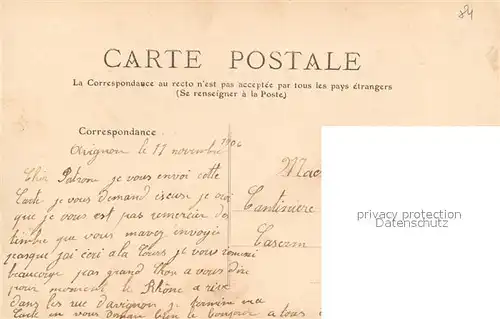 84
CARTE POSTALE
La Correspondance au recto n'est pas acceptée par tous les pays étrangers
(Se renseigner à la Poste.)
Correspondance
Avignon le 17 novembre 1906
Cher Patron je vous envoi cette
Carte je vous demand je croi
que je vous est pas remercier des
timbre que vous mavez envoyé
pasque jai écri a la Tour je vous
beaucoup pas grand a vous dire
pour moment le Rhône a
dans les rue davignon je termine ma
Carte en vous bien le Bonjour a tous
Cantiniere
Casern
privacy protection
Datenschutz